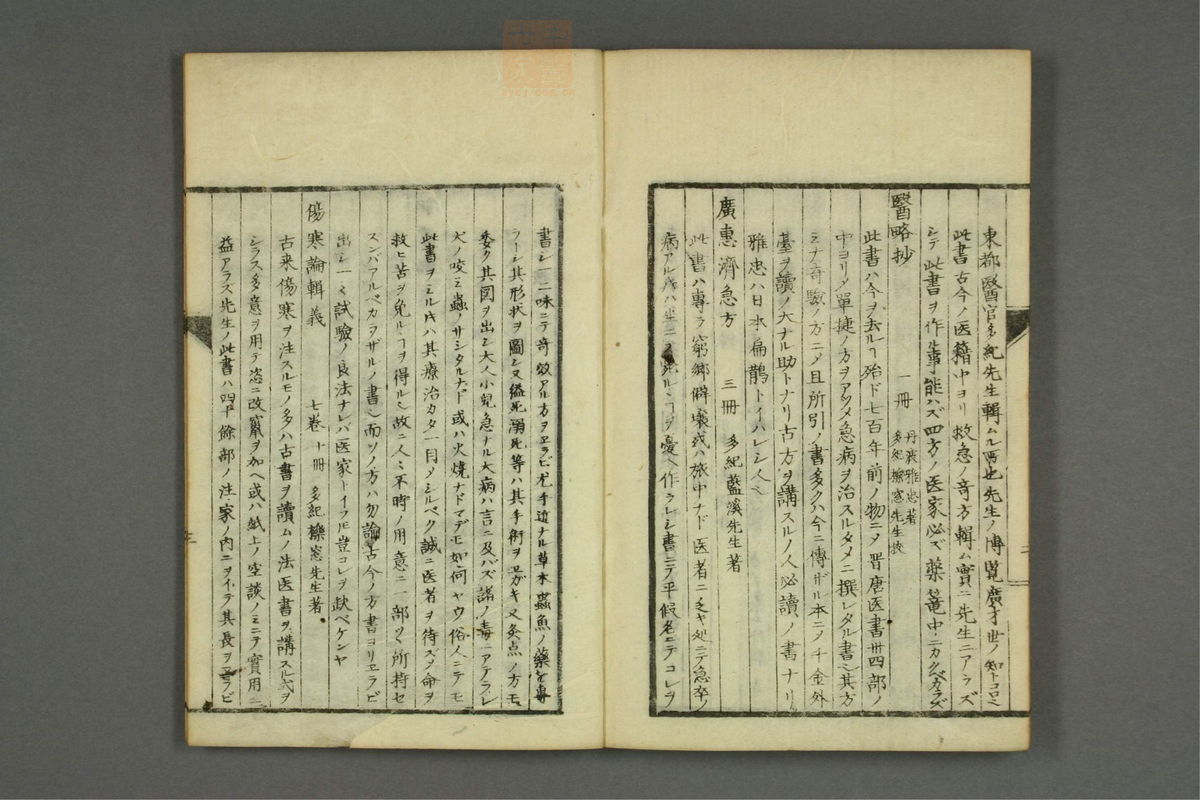 東都醫官多紀先生輯ムル所也先生ノ博覧廣才世ノ知トコロニ
此書古今ノ医籍中ヨリ救急ノ奇方輯ム實ニ先生ニアラズ
シテ此書ヲ作ル事能ハズ四方ノ医家必ズ薬篭中ニカクベカラズ
醫略抄 一冊 丹波雅忠著 多紀櫟窓先生挍
此書ハ今ヲ去ルヿ殆ド七百年前ノ物ニメ晋唐医書卅四部ノ
中ヨリノ單捷ノ方ヲアツメ急病ヲ治スルタメニ撰レタル書也其方
ミナ奇驗ノ方ニメ且所引ノ書多クハ今ニ傳ザル本ニメ千金外
臺ヲ讀ノ大ナル助トナリ古方ヲ講スルノ人必讀ノ書ナリ
雅忠ハ日本ノ扁鵲トイハレシ人也
廣惠濟急方 三冊 多紀藍溪先生著
此書ハ專ラ窮郷僻壤或ハ旅中ナド医者ニ乏キ処ニテ急卒ノ
病アル時ハ坐ニメ死ルヿヲ憂ヘ作ラレシ書ニテ平假名ニテコレヲ
書シ一二味ニテ奇效アル方ヲヱラビ尤手近ナル草木蟲魚ノ藥を專
ラーシ其形状ヲ圖シ又縊死溺死等ハ其手術ヲヱガキ又灸点ノ方モ
委ク其図ヲ出シ大人小児急ナル大病ハ言ニ及バズ諸ノ毒ニアテラレ
犬ノ咬ミ蟲ノサシタルナド或ハ火燒ナドマデモ如何ヤウ俗人ニテモ
此書ヲミル時ハ其療治カタ一目メシルベク誠ニ医者ヲ待ズメ命ヲ
救ヒ苦ヲ免ルヽヿヲ得ル也故ニ人々不時ノ用意ニ一部ツヽ所持セ
スンバアルベカラザルノ書也而ソノ方ハ勿論古今ノ方書ヨリヱラビ
出シ一々試驗ノ良法ナレバ医家トイフトモ豈コレヲ缺ベケンヤ
傷寒論輯義 七卷十冊 多紀櫟窓先生著
古来傷寒ヲ注スルモノ多ハ古書ヲ讀ムノ法医書ヲ講スル式ヲ
シラス多意ヲ用テ恣ニ改竄ヲ加ヘ或ハ紙上ノ空談ノミニテ實用ニ
益アラス先生ノ此書ハ四十余部ノ注家ノ内ニヲイテ其長ヲヱラビ